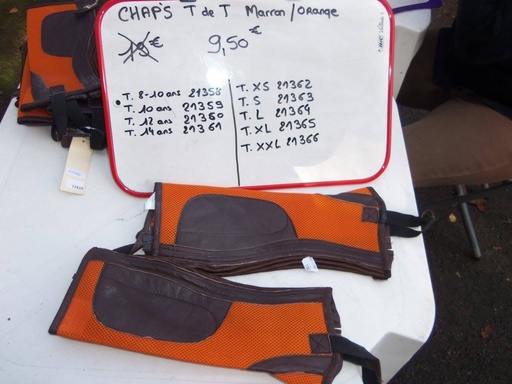 CHAP'S T de T Marron / ORange
9,50 €
T. 8-10 ans 21358
T. 10 ans 21359
T. 12 ans 21360
T. 14 ans 21361
T. XS 21362
T. S 21363
T. L 21364
T. XL 21365
T. XXL 21366